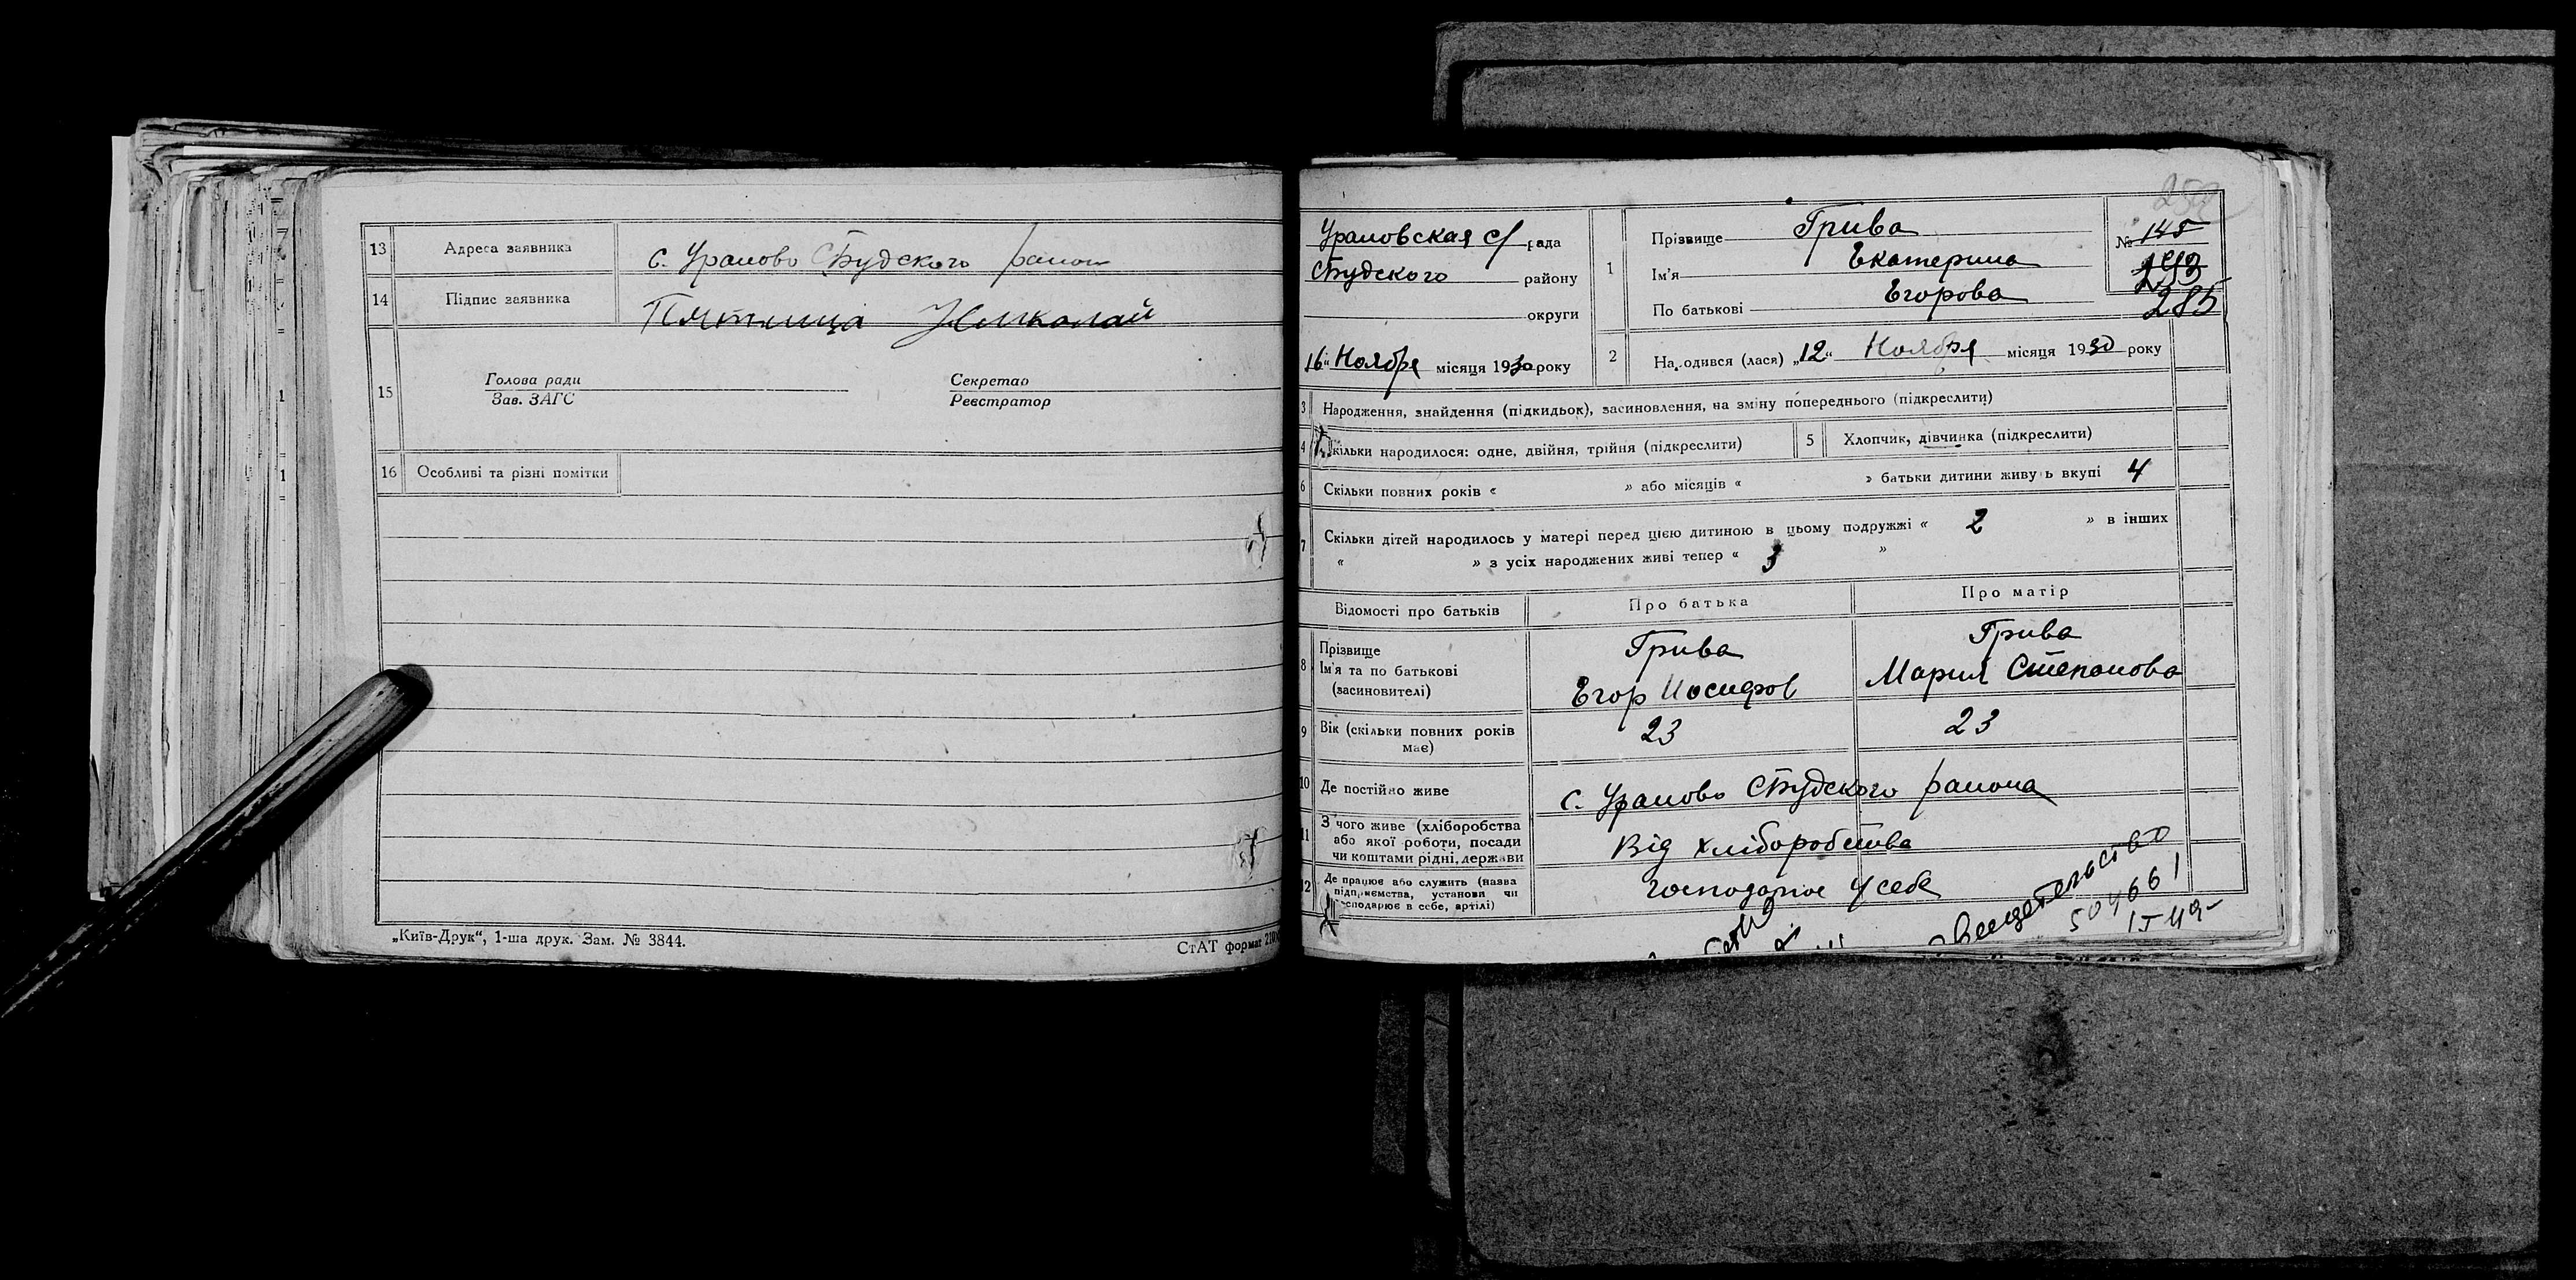 13 Адреса заявника с. Ураново СБудского район
14 Підпис заявника Пятниця Николай
15 Голова ради Секретар
Зав. ЗАГС Реєстратор
16 Особливі та різні помітки
„Київ-Друк“, 1-ша друк. Зам. № 3844.
СтАТ формат 210
Урановская с/ рада
СБудского району
округи
„16“ Ноября місяця 1930 року
1 Прізвище Грива
Ім'я Екатерина
По батькові Егорова
№ 145
285
2 Народився (лася) „12“ Ноября місяця 1930 року
3 Народження, знайдення (підкидьок), засиновлення, на зміну попереднього (підкреслити)
4 Скільки народилося: одне, двійня, трійня (підкреслити)
5 Хлопчик, дівчинка (підкреслити)
6 Скільки повних років « » або місяців « » батьки дитини живуть вкупі 4
7 Скільки дітей народилось у матері перед цією дитиною в цьому подружжі « 2 » в інших
« » з усіх народжених живі тепер « 3 »
Відомості про батьків Про батька Про матір
8 Прізвище Грива Грива
Ім'я та по батькові Егор Иосифов Мария Степанова
(засиновителі)
9 Вік (скільки повних років 23 23
має)
10 Де постійно живе с. Ураново СБудского района
11 З чого живе (хліборобства
або якої роботи, посади Від хліборобства
чи коштами рідні, держави
12 Де працює або служить (назва
підприємства, установи чи господарює у себе
господарює в себе, артілі)
Свидетельство
504661